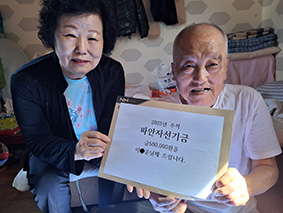 2025년 추석
파안자선기금
금500,000원을
드립니다.